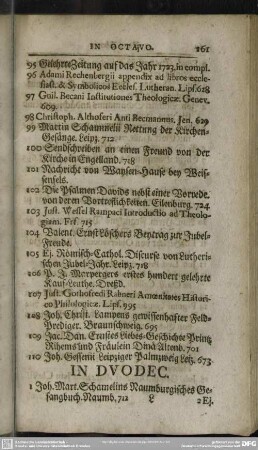 IN OCTAVO. 161
95 Gelehrte Zeitung auf das Jahr 1723. in compl.
96 Adami Rechenbergii appendix ad libros eccle-
siast. & Symbolicos Ecclef. Lutheran. Lips. 678
97 Guil. Becani Institutiones Theologicæ. Genev.
609.
98 Christoph. Althoferi Anti Becmannus. Jen. 629
99 Martin Schamnelii Rettung der Kirchen-
Gesänge. Leipz. 712
100 Sendschreiben an einen Freund von der
Kirche in Engelland. 718
101 Nachricht von Waysen-Hause bey Weis-
sensels.
102 Die Psalmen Davids nebst einer Vorrede
von deren Vortreflichkeiten. Eilenburg. 724
103 Just. Wessel Rumpaei Introductio ad Theolo-
giam. Frf. 715
104 Valent. Ernst Löschers Beytrag zur Jubel-
Freude.
105 Ej. Römisch-Cathol. Discurse von Lutheri-
schen Jubel-Jahr. Leipz. 718
106 P. J. Marpergers erstes hundert gelehrte
Kauf-Leuthe. Dreßd.
107 Just. Gothofredi Rabneri Amenitates Histori-
co Philologicæ. Lips. 695
108 Joh. Christ. Lampens gewissenhafter Feld-
Prediger. Braunschweig. 695
109 Jac. Dan. Ernstes Liebes-Geschichte Printz
Rihems und Fräulein Dina. Altenb. 701
110 Joh. Gossenii Leipziger Palmzweig Letz. 673.
IN DVODEC.
1 Joh. Mart. Schamelins Naumburgisches Ge-
sangbuch. Naumb. 712
L 2 Ej.